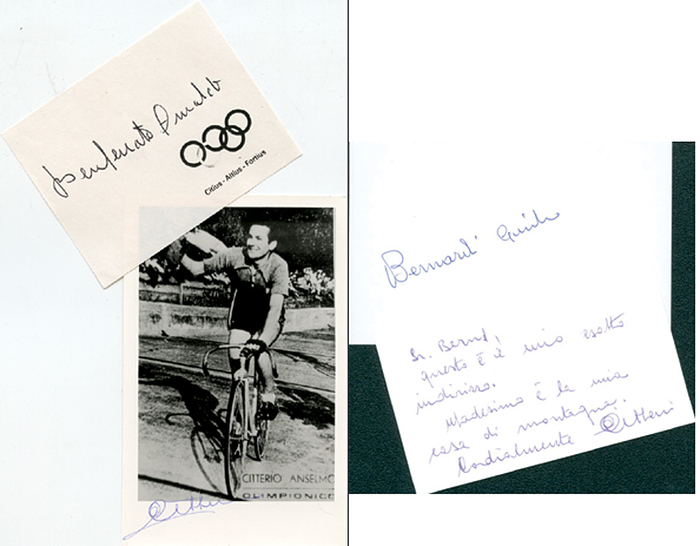 Benfenati Amaleto
Citius - Altius - Fortius
CITTERIO ANSELMO
OLIMPIONICO
Citteri
Bernardi Guido
Sr. Bernd,
questo è è mio esatto
indirizzo.
Madesimo è la mia
casa di montagna.
Cordialmente Citteri